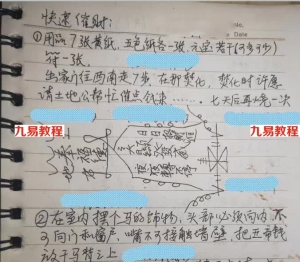 快速催财:
No.
Date
①用品 7张黄纸, 五色纸各一张, 元宝若干(可多可少)
符一张.
出家门往西南走7步, 在那焚化, 焚化时许愿
请土地公帮忙催点钱来…… 七天后再烧一次
九易教程
九易教程
②在室内摆个马的饰物, 头部必须向内, 不
可向门和窗户, 嘴不可接触墙壁, 把五帝钱
放于马背之上